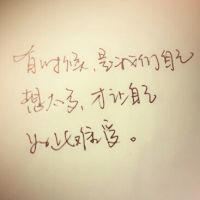 有时候，是我们自己
想太多，才让自己
如此难受。